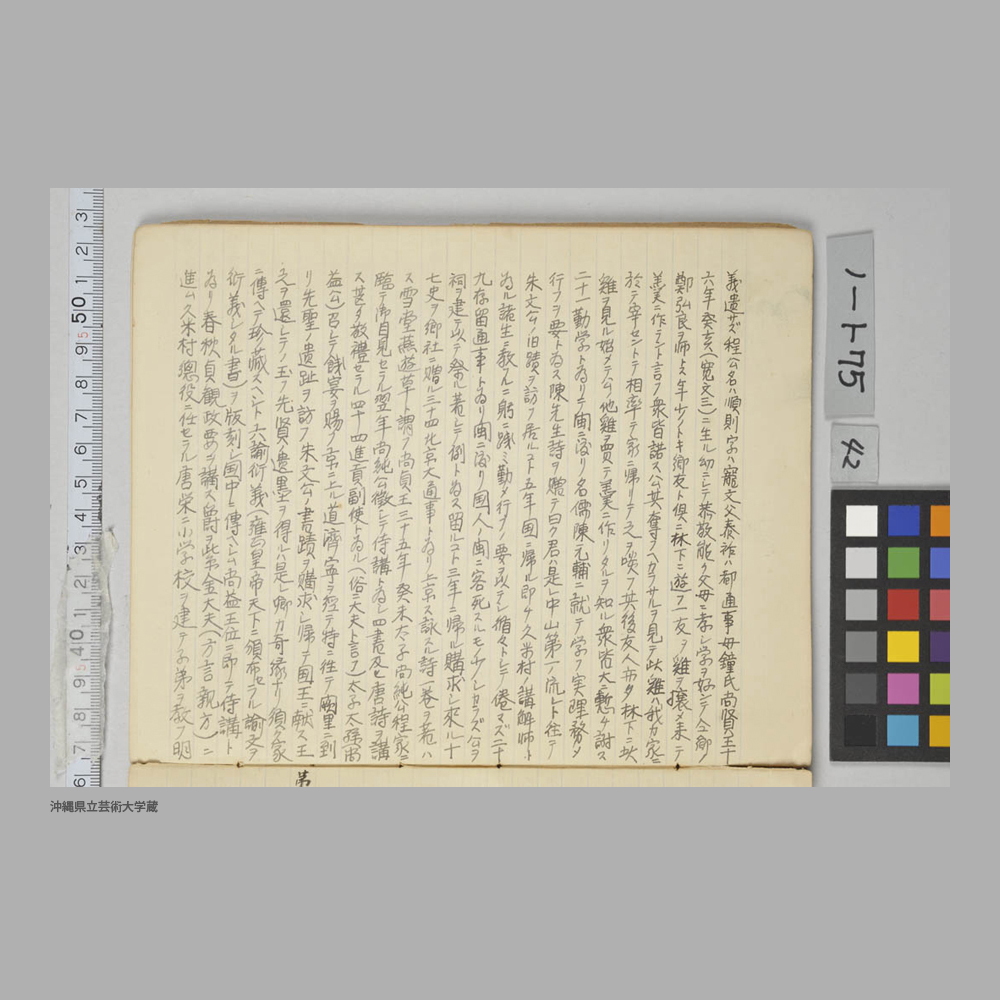 義遺サズ程公名ハ順則字ハ寵文父泰祚ハ都通事母鐘氏尚賢王十
六年癸亥(寛文三)ニ生ル幼ニシテ恭敬能ク父母ニ孝シ学ヲ好ンデ仝郷
鄭弘良ヲ師トス年少ノトキ郷友ト倶ニ林下ニ遊フ一友ヲ雞ヲ攘メ来テ
羹ニ作ラント言フ衆皆諾ス公共奪フヘカラサルヲ見テ此雞ハ我カ家ニ
於テ宰セントテ相率テ家ニ帰リテ之ヲ啖フ其後友人亦タ林下ニ此
雞ヲ見ル始メテ公他雞ヲ買テ羹ニ作リタルヲ知ル衆皆大ニ慙チ謝ス
二十一勤学トナリテ閩ニ渡リ名儒陳元輔ニ就テ学フ実理務メ
行フヲ要ト為ス陳先生詩ヲ贈テ曰ク君ハ是レ中山第一ノ流レト往テ
朱文公ノ旧蹟ヲ訪フ居ルコト五年国ニ帰ル即チ久米村ノ講解師ト
為ル諸生ニ教ルニ躬ニ踐ミ勤メ行フノ要ヲ以テシ循々トシテ倦マズ二十
九存留通事トナリ閩ニ渡リ國人ノ閩ニ客死スルモノ少シトセズ公ヲ
祠ヲ建テ以テ祭ル著シテ例ト為ス留ルコト三年ニ帰ル購求シ來ル十
七史ヲ郷社ニ贈ル三十四北京大通事トナリ上京ス詠スル詩一巻ヲ著ハ
ス雪堂燕遊草ト謂フ尚貞王三十五年癸未太子尚純公程家ニ
臨テ帝自見セラル翌年尚純公徴シテ侍講トナシ四書及ヒ唐詩ヲ講
ス甚タ敬禮セラル四十四進貢副使トナル(俗ニ大夫ト言フ)太子太孫尚
益公召シテ餞宴ヲ賜フ京ニ上ル道濟寧ヲ経テ特ニ往テ闕里ニ到
リ先聖ノ遺趾ヲ訪フ朱文公ノ書蹟ヲ購求シ帰テ国王ニ献ス王
之ヲ還シテノ玉フ先賢ノ遺墨ヲ得ルハ是レ卿カ奇縁ナリ須ク家
ニ傳ヘテ珍藏スベシト六諭衍義(雍正皇帝天下ニ頒布セラル諭文ヲ
衍義シタル書)ヲ版刻シ国中ニ傳ヘシム尚益王位ニ即テ侍講ト
ナリ春秋貞観政要ヲ講ス爵ヲ此年金大夫(方言親方)ニ
進ム久米村總役ニ任セラル唐榮ニ小学校ヲ建テ子弟ヲ教フ明
第
ノート75
42
沖縄県立芸術大学蔵